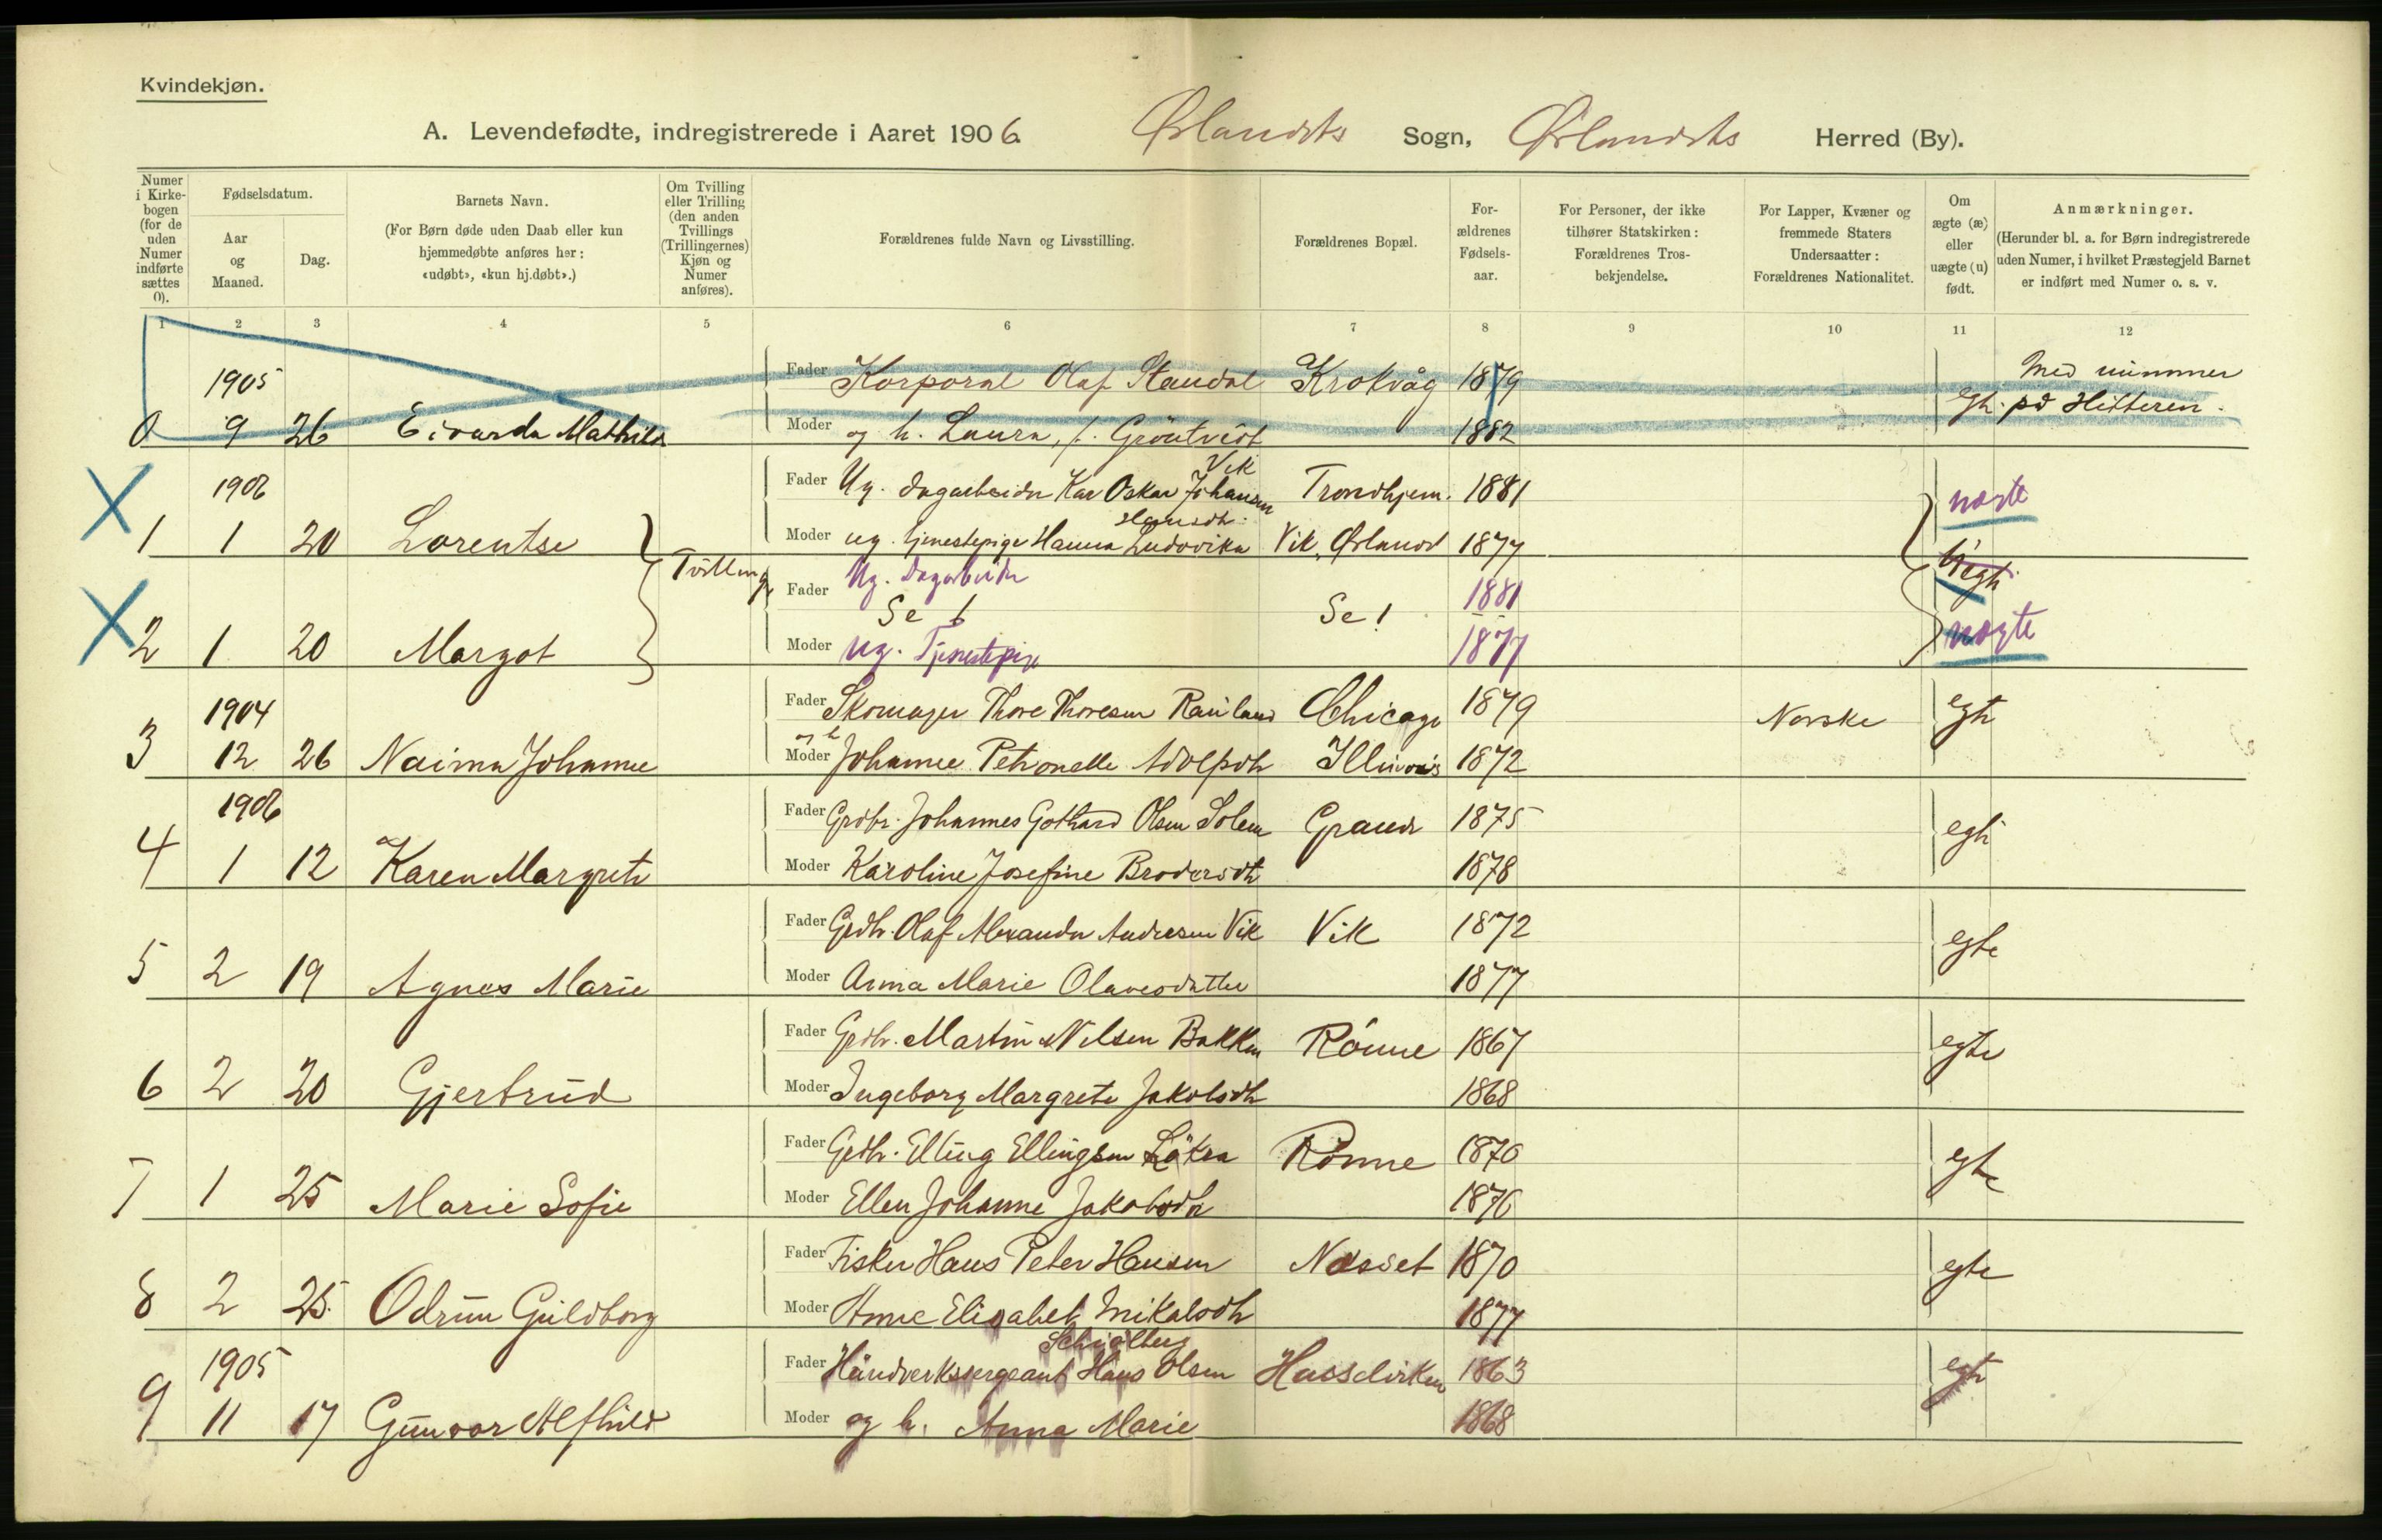 Kvindekjøn.
A. Levendefødte, indregistrerede i Aaret 1906. Ørlandets Sogn, Ørlandets Herred (By).
Numer i Kirkebogen (for de uden Numer indførte sættes 0).
Fødselsdatum.
Aar og Maaned.
Dag.
Barnets Navn.
(For Børn døde uden Daab eller kun hjemmedøbte anføres her: «udøbt», «kun hj.døbt».)
Om Tvilling eller Trilling (den anden Tvillings (Trillingernes) Kjøn og Numer anføres).
Forældrenes fulde Navn og Livsstilling.
Forældrenes Bopæl.
For-ældrenes Fødsels-aar.
For Personer, der ikke tilhører Statskirken: Forældrenes Tros-bekjendelse.
For Lapper, Kvæner og fremmede Staters Undersaatter: Forældrenes Nationalitet.
Om ægte (æ) eller uægte (u) født.
Anmærkninger.
(Herunder bl. a. for Børn indregistrerede uden Numer, i hvilket Præstegjeld Barnet er indført med Numer o. s. v.
1 2 3 4 5 6 7 8 9 10 11 12
1905 Fader Korporal Olaf Standal Krokvåg 1879 Med nummer
0 9 26 Eivarda Mathilde Moder og h. Laura, f. Gröntvedt 1882 egte på Hitteren.
1906 Fader Ug. dagarbeider Kar Oskar Johansen Vik Trondhjem. 1881 uægte
1 1 20 Lorentse Moder ug. tjenestepige Hanna Ludovika Hansdtr. Vik, Ørland 1877
Tvillinger
Fader Ug. Dagarbeider Se! Se! 1881
2 1 20 Margot Moder Ug. Tjenestepige 1877 uægte
1904 Fader Skomager Thore Thoresen Rauland Chicago 1879 Norske egte
3 12 26 Naima Johanne og h Moder Johanne Petronelle Adolpsdtr Illinois 1872
1906 Fader Grdbr. Johannes Gothard Olsen Solem Grande 1875 egte
4 1 12 Karen Margrete Moder Karoline Josefine Brodersdtr 1878
Fader Grdbr. Olaf Alexander Andresen Vik Vik 1872 egte
5 2 19 Agnes Marie Moder Anna Marie Olavesdatter 1877
Fader Grdbr. Martin Nilsen Bakken Rönne 1867 egte
6 2 20 Gjertrud Moder Ingeborg Margrete Jakobsdtr 1868
Fader Grdbr. Elling Ellingsen Lökra Rönne 1870 egte
7 1 25 Marie Sofie Moder Ellen Johanne Jakobsdtr 1876
Fader Fisker Hans Peter Hansen Næsset 1870 egte
8 2 25. Odrun Guldborg Moder Anne Elisabet Mikalsdtr 1877
1905 Fader Håndverkssergeant Hans Olsen Schjölberg Hasselvirken 1863 egte
9 11 17 Gunvor Alfhild Moder og h. Anna Marie 1868